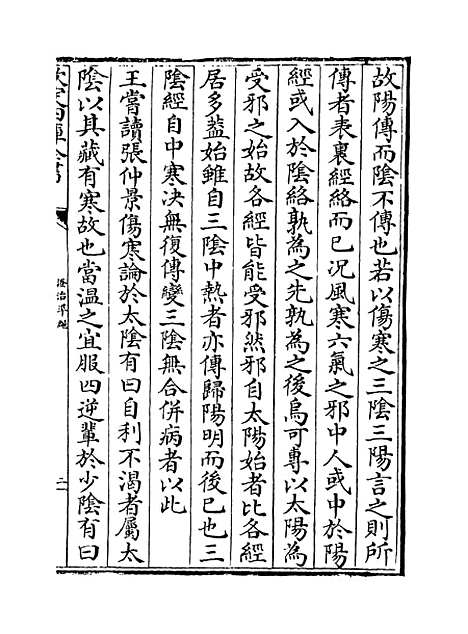 故陽傳而陰不傳也若以傷寒之三陰三陽言之則所
傳者表裏經絡而已况風寒六氣之邪中人或中於陽
經或入於陰絡孰為之先孰為之後烏可專以太陽為
受邪之始故各經皆能受邪然邪自太陽始者比各經
居多蓋始雖自三陰中熱者亦傳歸陽明而後已也三
陰經自中寒決無復傳變三陰無合併病者以此
王嘗讀張仲景傷寒論於太陰有曰自利不渴者屬太
陰以其藏有寒故也當温之宜服四逆輩於少陰有曰
欽定四庫全書
證治凖繩
二